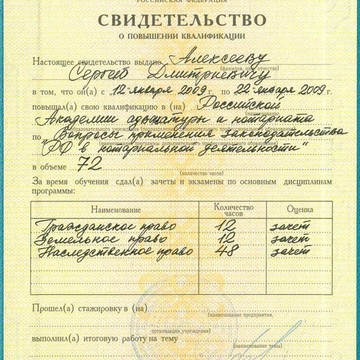 РОССИЙСКАЯ ФЕДЕРАЦИЯ
СВИДЕТЕЛЬСТВО
О ПОВЫШЕНИИ КВАЛИФИКАЦИИ
Настоящее свидетельство выдано Алексееву
(фамилия, имя, отчество)
Сергею Дмитриевичу
в том, что он(а) с 12 января 2009 г. по 22 января 2009 г.
повышал(а) свою квалификацию в (на) Российской
Академии адвокатуры и нотариата
по "Вопросы применения законодательства
РФ в нотариальной деятельности"
в объеме 72
За время обучения сдал(а) зачеты и экзамены по основным дисциплинам
программы:
Наименование Количество часов Оценка
Гражданское право 12 зачет
Земельное право 12 зачет
Наследственное право 48 зачет
Прошел(а) стажировку в (на)
(наименование предприятия,
организации, учреждения)
выполнил(а) итоговую работу на тему
(наименование темы)